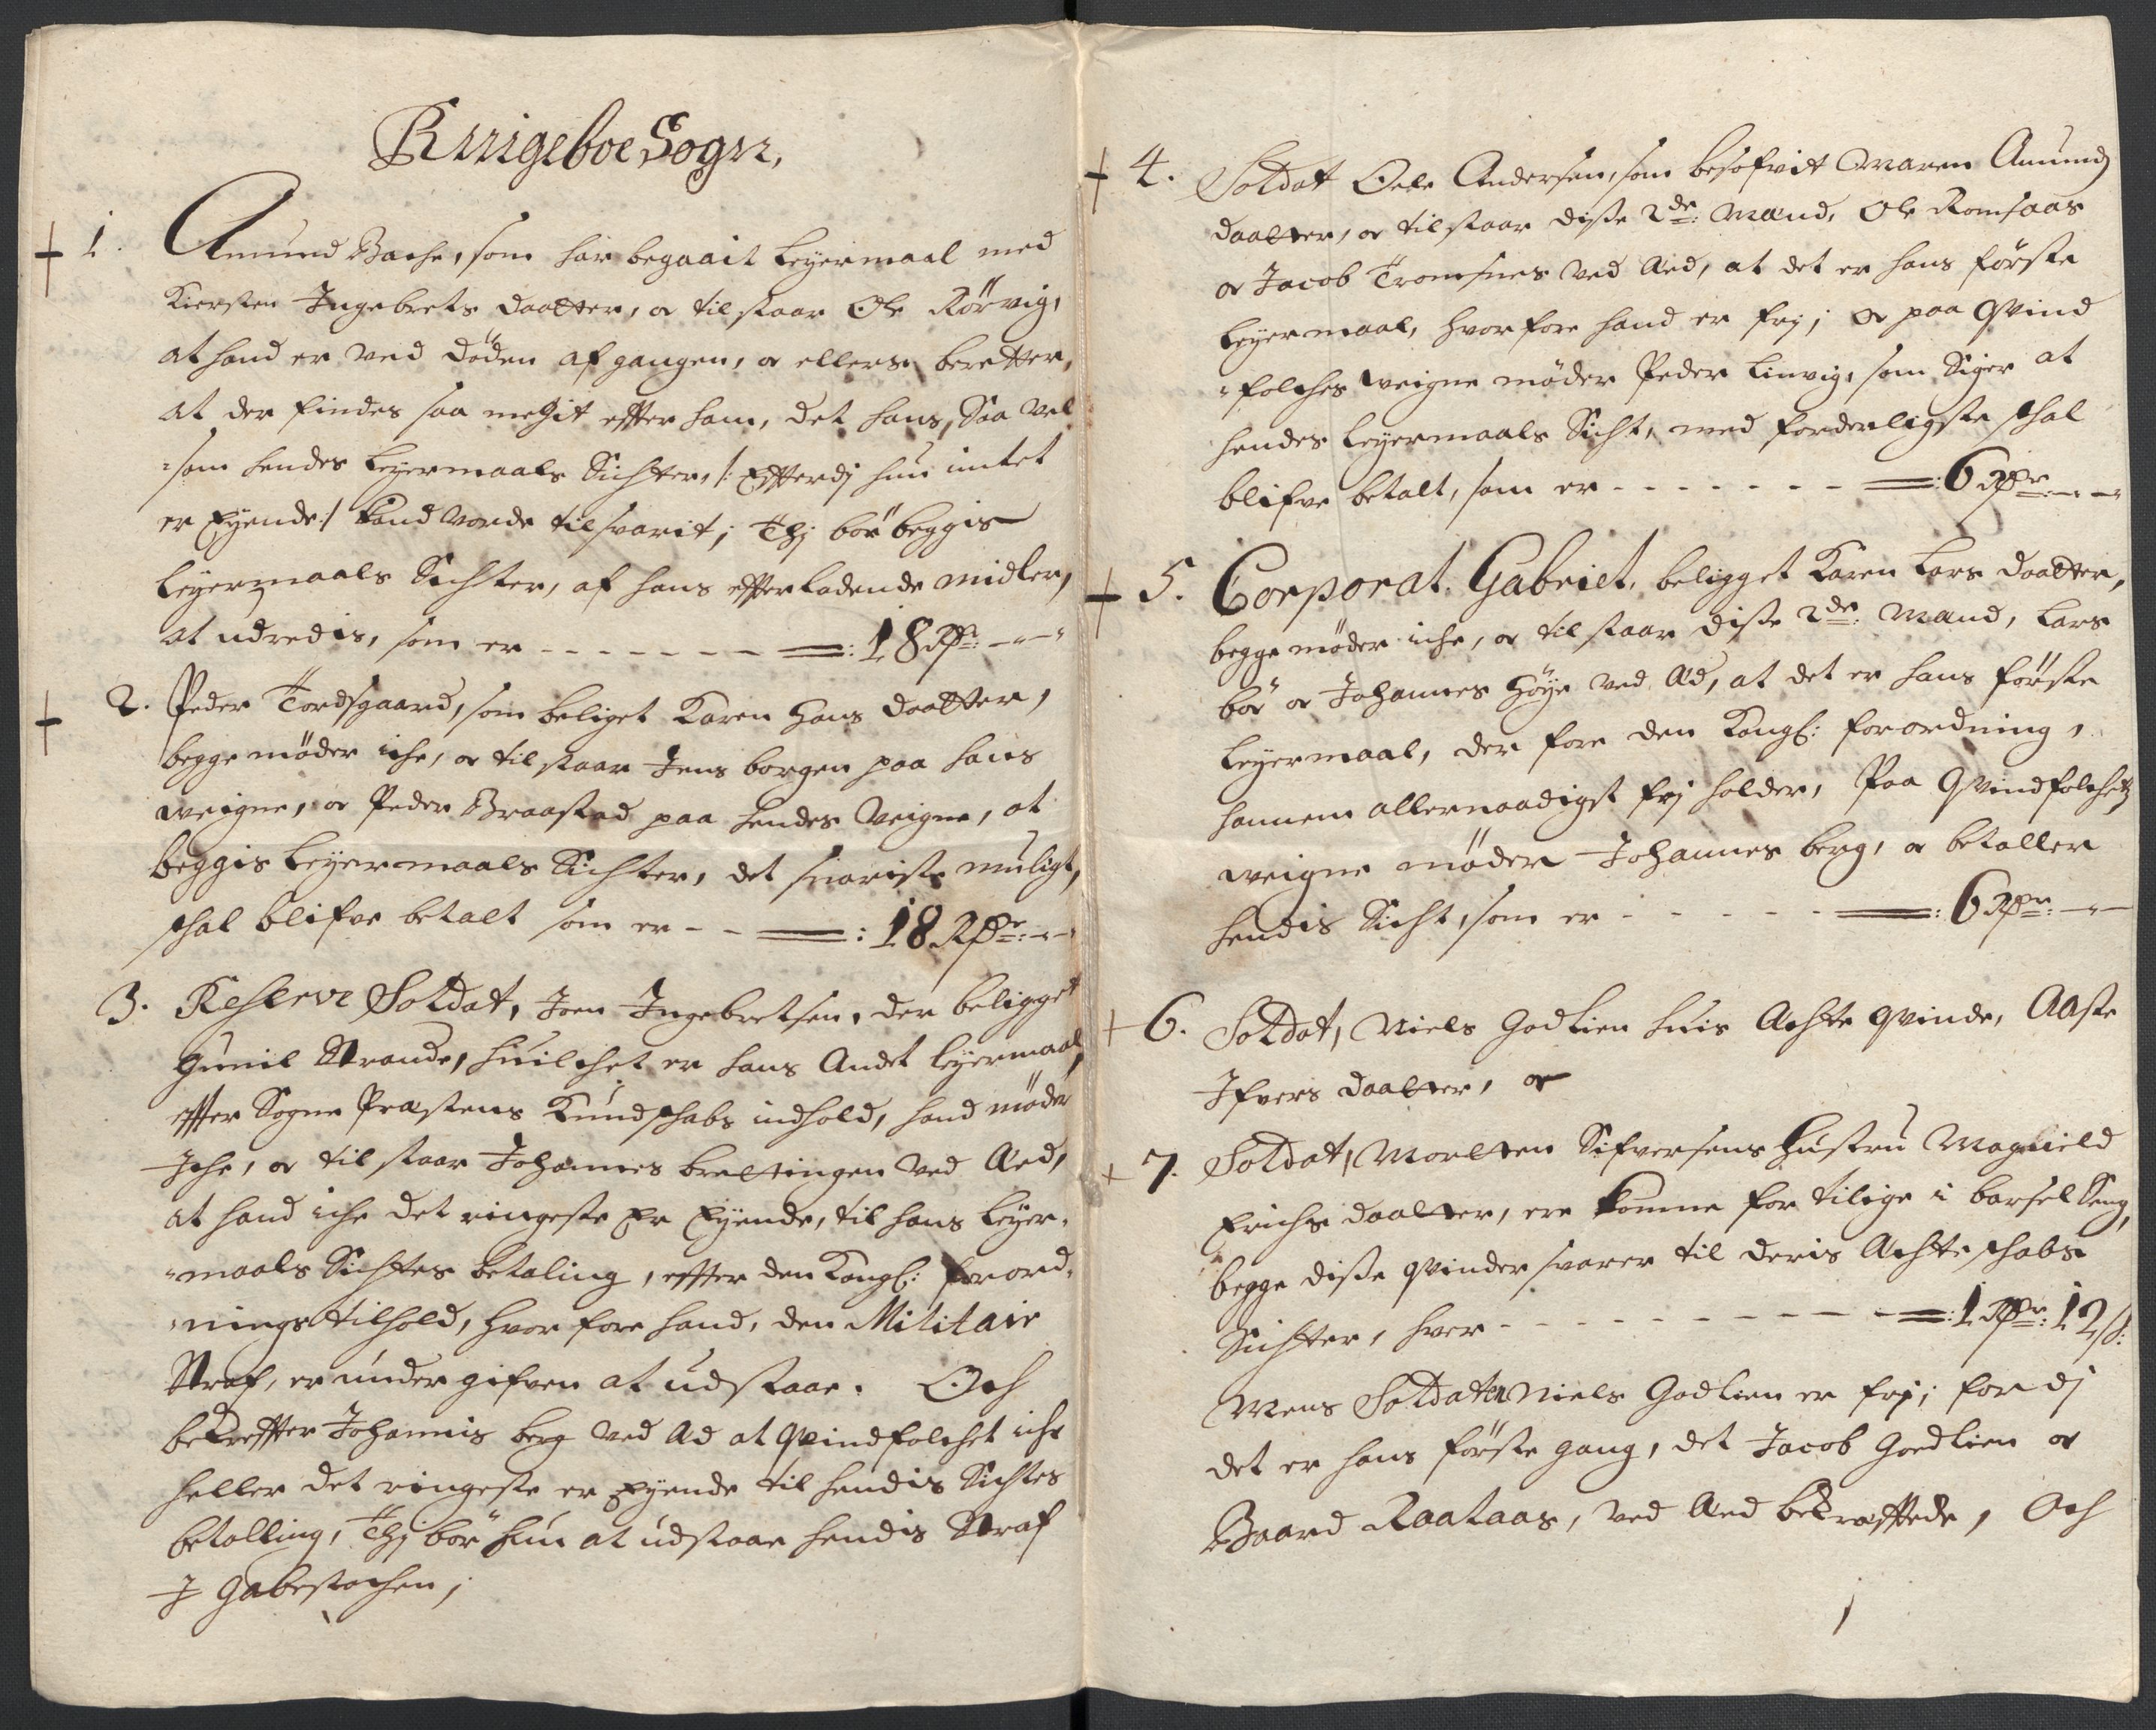 Ringeboe Sogn,
+ 1. Amund Bache, som har begaait Leyermaal med
Kiersten Ingebrets daatter, oc tilstaar Ole Rörvig,
at hand er ved döden afgangen, oc ellers beretter,
at der findes saa megit effter ham, det hans, Saa vel
=som hendes Leyermaals Sichter, /: Effterdj hun intet
er Eyende :/ kand vorde tilsvarit; Thj bör beggis
Leyermaals Sichter, af hans effterladende midler,
at udredis, som er - - - - - - - =: 18 Rdr: - " - "
+ 2. Peder Tordsgaard, som beliget Karen Hans daatter,
begge möder iche, oc tilstaar Jens borgen paa hans
weigne, oc Peder Braastad paa hendes Veigne, at
beggis Leyermaals Sichter, det snariste muligt,
schal blifve betalt som er - - =: 18 Rdr: - " -
3. Reserve Soldat, Joen Ingebretsen, der beligget
Gunil Strande, huilchet er hans Andet Leyermaal,
effter Sogne Præstens Kundschabs indhold, hand möder
Iche, oc tilstaar Johannes brettingen ved Æed,
at hand iche det ringeste Er Eyende, til hans Leyer=
=maals Sichtes betaling, effter den Kongl: forord=
=nings tilhold, hvorfore hand, den Militair
Straf, er undergifven at udstaae. Och
bekreffter Johannis berg ved Æd at Qvindfolchet iche
heller det ringeste er Eyende til hendis Sichtes
betalling, Thj bör hun at udstaae hendis Straf
I Gabestochen;
+ 4. Soldat Oele Andersen, som besofvit Maren Amunds
daatter, oc tilstaar disse 2de: Mænd, Ole Romsaas
oc Jacob Tromsnes ved Æed, at det er hans förste
Leyermaal, hvorfore hand er frj; oc paa Qvind
=folches weigne möder Peder Linvig, som Siger at
hendes Leyermaals Sicht, med forderligste schal
blifve betalt, som er - - - - - - - =: 6 Rdr: - " -
+ 5. Corporal Gabriel, beligget Karen Lars daatter,
begge möder iche, oc tilstaar disse 2de: Mænd, Lars
böe oc Johannes Höye ved Æd, at det er hans förste
Leyermaal, der fore den Kongl: forordning,
hannem allernaadigst frj holder, Paa Qvindfolchetz
weigne möder Johannes berg, oc betaller
hendis Sicht, som er - - - - - =: 6 Rdr: - " -
+ 6. Soldat, Niels Godlien huis Ächte Qvinde, Aaste
Ifvers daatter, oc
+ 7. Soldat, Morten Sifversens Hustru Magnild
Erichs daatter, ere komne for tilige i barsel Seng,
begge disse Qvinder svarer til deris Ächteschabs
Sichter, hver - - - - - - - - =: 1 Rdr: 12 s:
Mens Soldaten Niels Godlien er frj; fordj
det er hans förste gang, det Jacob Goedlien oc
Baard Raataas, ved Æed bekræfftede, Och